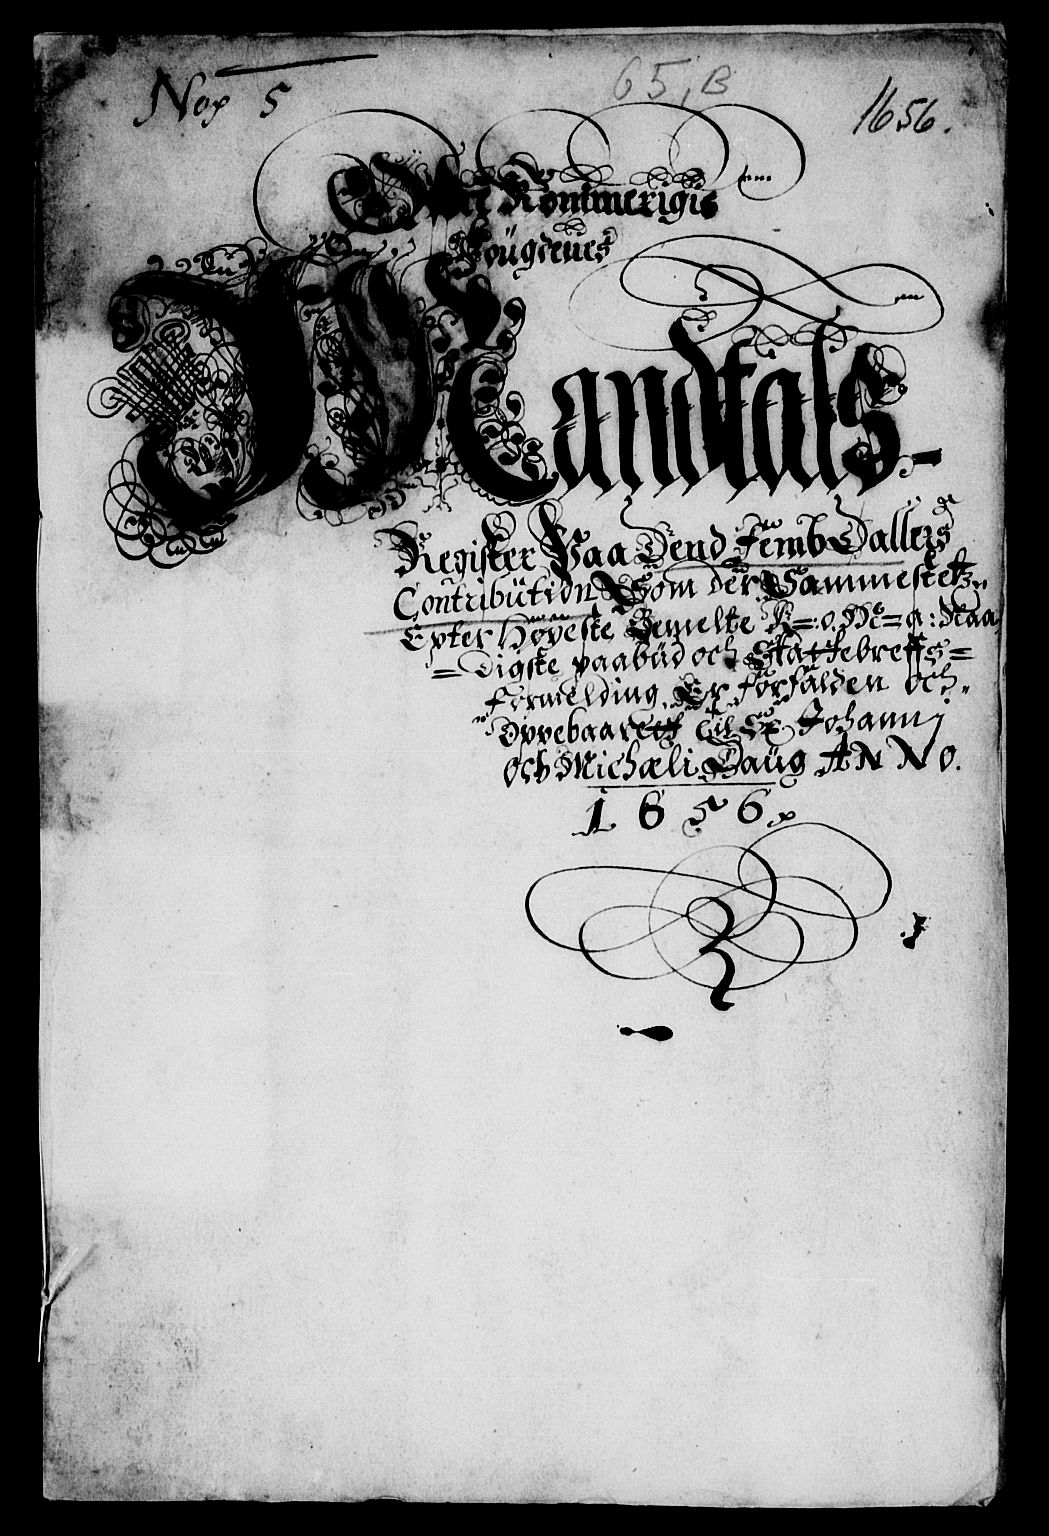 No 5
65, B
1656.
Öffre Rommerigis
Fougdenes
Mandtals-
Register Paa Dend femb Dallers
Contribution Som der Sammestetz
Epter Høyeste Bemelte K: M: Naa
=digste paabud och Skattebreffs=
formelding, Er forfalden och
Oppebaarett til St Johannj
och Michæli Daug ANNO.
1656.